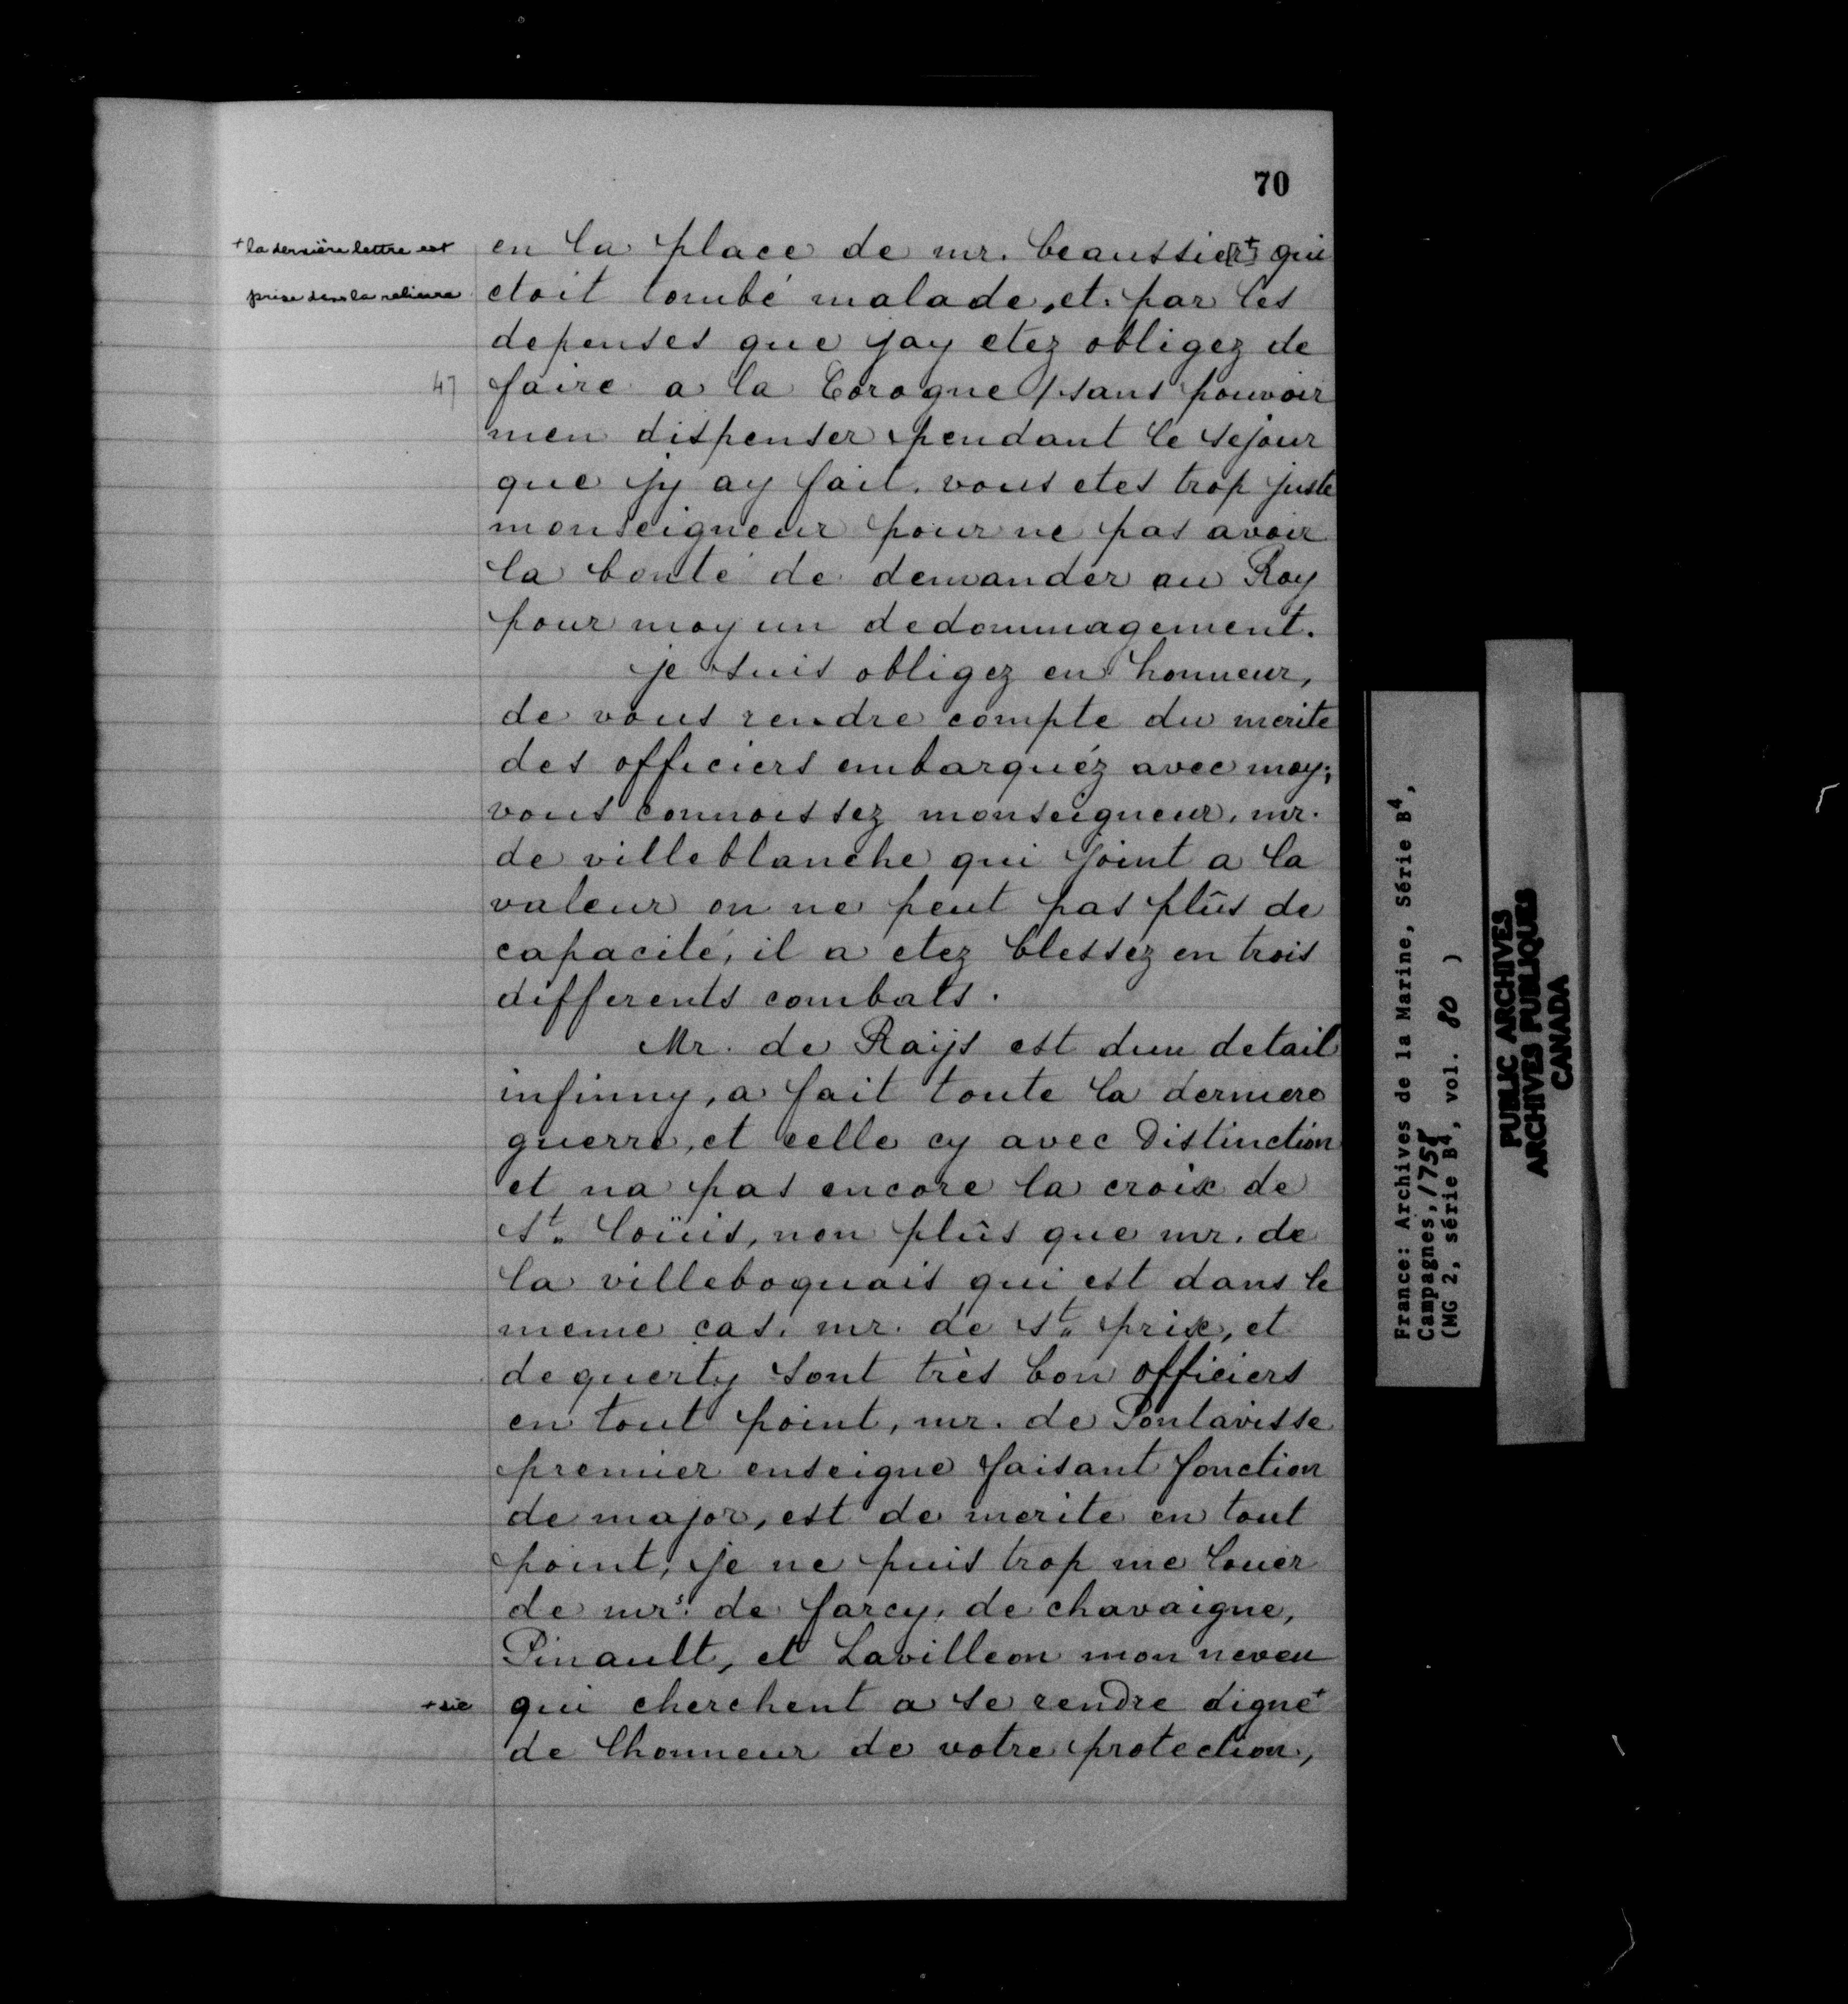 70
+ la dernière lettre est
prise dans la relieure
en la place de mr. beaussie[r]+ qui
etoit tombé malade, et par les
depenses que jay etez obligez de
47
faire a la Corogne / sans pouvoir
men dispenser pendant le sejour
que jy ay fait. vous etes trop juste
monseigneur pour ne pas avoir
la bonté de demander au Roy
pour moy un dedommagement.
je suis obligez en honneur,
de vous rendre compte du merite
des officiers embarquéz avec moy;
vous connoissez monseigneur, mr.
de villeblanche qui joint a la
valeur on ne peut pas plûs de
capacité, il a etez blessez en trois
differents combats.
Mr. de Raijs est dun detail
infinny, a fait toute la derniere
guerre, et celle cy avec Distinction
et na pas encore la croix de
St. Loüis, non plûs que mr. de
la villeboquais qui est dans le
meme cas. mr. de St. prix, et
de querty sont très bon officiers
en tout point, mr. de Pontavisse
premier enseigne faisant fonction
de major, est de merite en tout
point, je ne puis trop me louer
de mrs. de farcy, de chavaigne,
Pinault, et Lavilleon mon neveu
+ sic
qui cherchent a se rendre digne+
de lhonneur de votre protection,
France: Archives de la Marine, Série B4,
Campagnes, 1758
(MG 2, série B4, vol. 80 )
PUBLIC ARCHIVES
ARCHIVES PUBLIQUES
CANADA